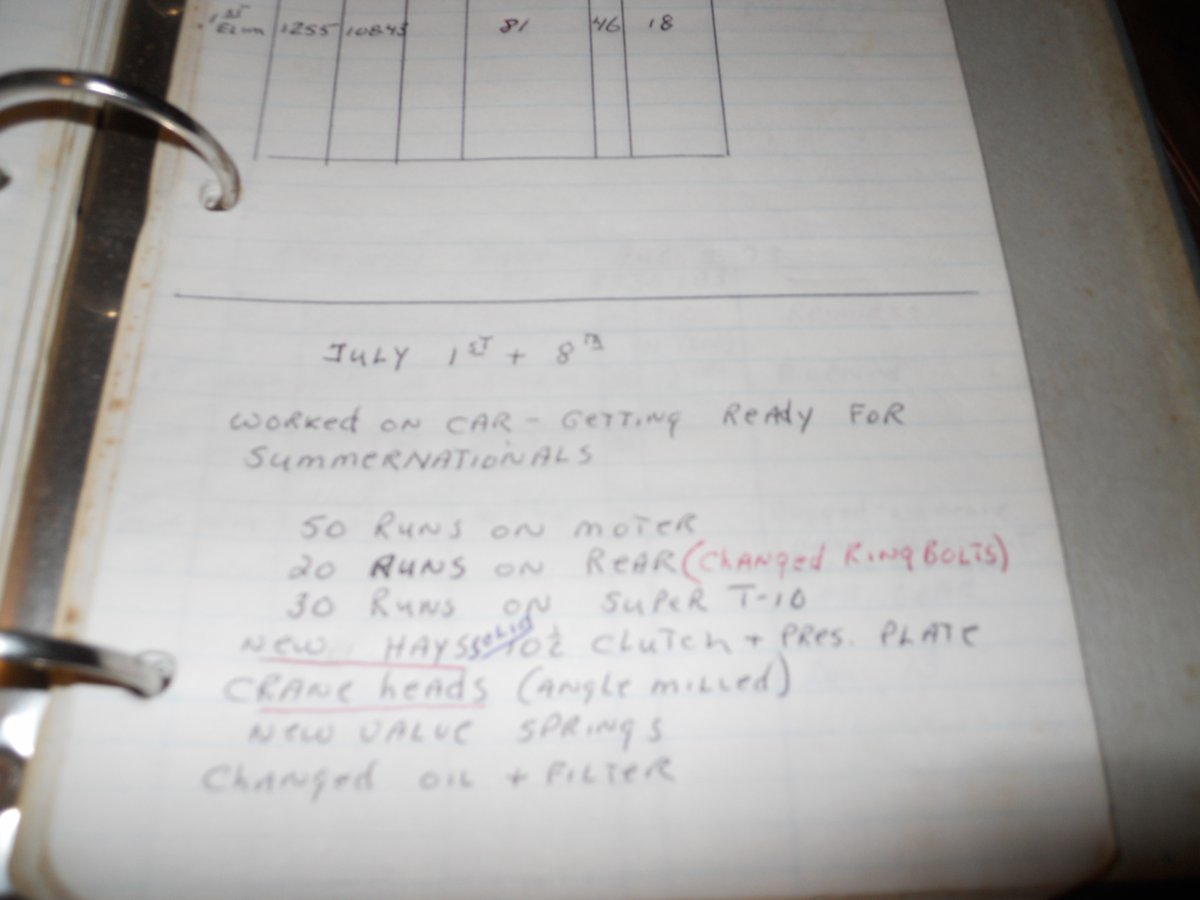 1ST Elim 1255 10843 81 46 18
JULY 1ST + 8TH
WORKed ON CAR - GeTTiNg ReAdy FOR
SummeRNATIONALS
50 RuNS ON MOTeR
20 RuNS ON ReAR (ChANged RiNg BOLTS)
30 RuNS ON SuPeR T-10
New HAYS SOLID 10½ CluTCh + PRES. PLATE
CRANe heAdS (ANgLe miLLed)
New VALVe SPRiNgS
ChANged OiL + FiLTeR